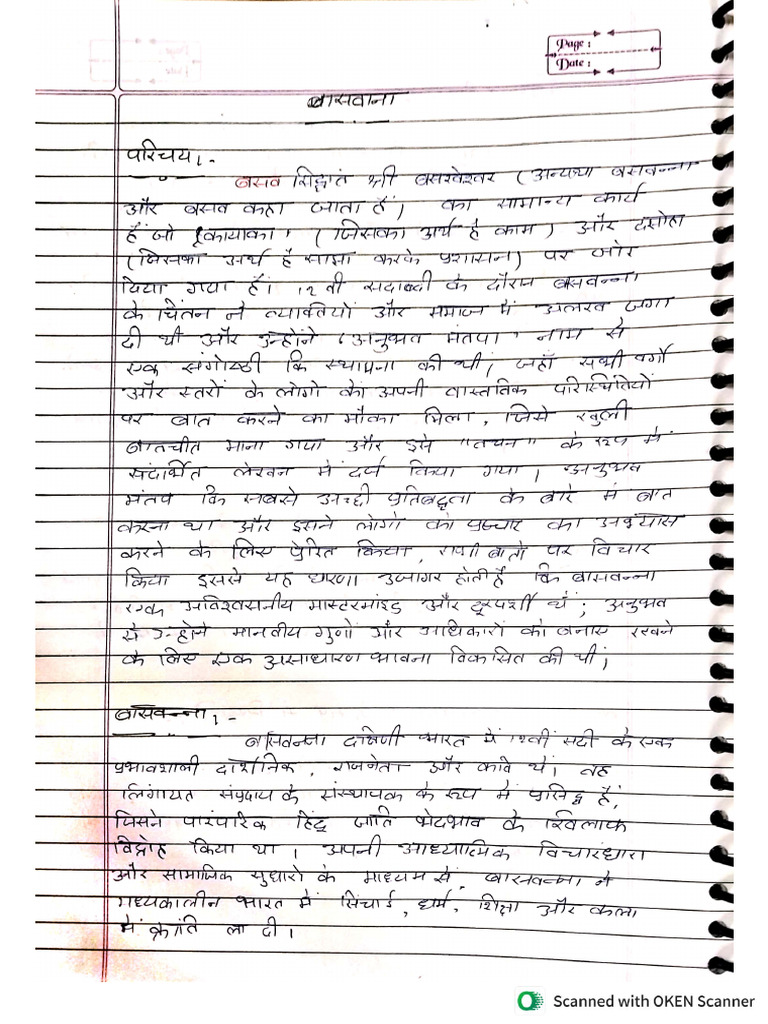 Page :
Date :
बासवाना
परिचय।-
बसव सिद्धांत श्री बसवेश्वर (अन्यथा बसवन्ना
और बसव कहा जाता है) का सामान्य कार्य
है जो 'कायाका' (जिसका अर्थ है काम) और दसोहा
(जिसका अर्थ है साझा करके प्रशासन) पर जोर
दिया गया है। 12 वी सदाब्दी के दौरान बसवन्ना
के चिंतन ने व्यक्तियों और समाज में अलख जगा
दी थी और उन्होंने 'अनुभव मंतपा' नाम से
एक संगोष्ठी कि स्थापना की थी, जहाँ सभी वर्गो
और स्तरों के लोगो को अपनी वास्तविक परिस्थितियों
पर बात करने का मौका मिला, जिसे खुली
बातचीत माना गया और इसे "वचन" के रूप में
संदर्भित लेखन में दर्ज किया गया। अनुभव
मंतप कि सबसे अच्छी प्रतिबद्धता के बारे में बात
करना था और इसने लोगों को प्रचार का अभ्यास
करने के लिए प्रेरित किया, बातो पर विचार
किया इससे यह धारणा उजागर होती है कि बासवन्ना
एक अविश्वसनीय मास्टरमाइंड और दूरदर्शी थे; अनुभव
से उन्होंने मानवीय गुणों और अधिकारों को बनाए रखने
के लिए एक असाधारण भावना विकसित की थी;
बासवन्ना,-
बासवन्ना दक्षिणी भारत में 12वीं सदी के एक
प्रभावशाली दार्शनिक, राजनेता और कवि थे। वह
लिंगायत संप्रदाय के संस्थापक के रूप में प्रसिद्ध है,
जिसने पारंपरिक हिंदू जाति भेदभाव के खिलाफ
विद्रोह किया था। अपनी आध्यात्मिक विचारधारा
और सामाजिक सुधारो के माध्यम से, बासवन्ना ने
मध्यकालीन भारत में सिंचाई, धर्म, शिक्षा और कला
में क्रांति ला दी।
Scanned with OKEN Scanner